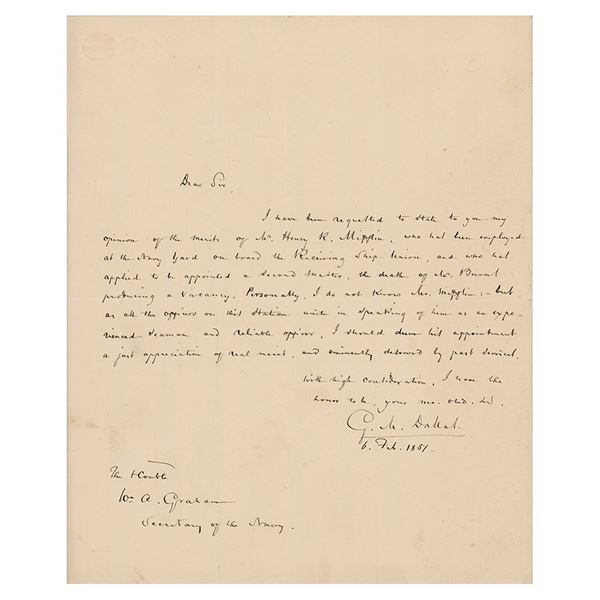 Dear Sir,
I have been requested to state to you my
opinion of the merits of Mr. Henry R. Mifflin, who has been employed
at the Navy Yard on board the Receiving Ship Union, and who has
applied to be appointed a Second Master, the death of Mr.
producing a vacancy. Personally, I do not know Mr. Mifflin: - but
as all the officers on this Station unite in speaking of him as an expe-
rienced seaman and reliable officer, I should deem his appointment
a just appreciation of real merit, and eminently deserved by past services.
With high consideration, I have the
honor to be, your mo. obd. sv.
G. M. Dallas.
6. Feb. 1851.
The Honble
Wm A. Graham
Secretary of the Navy.